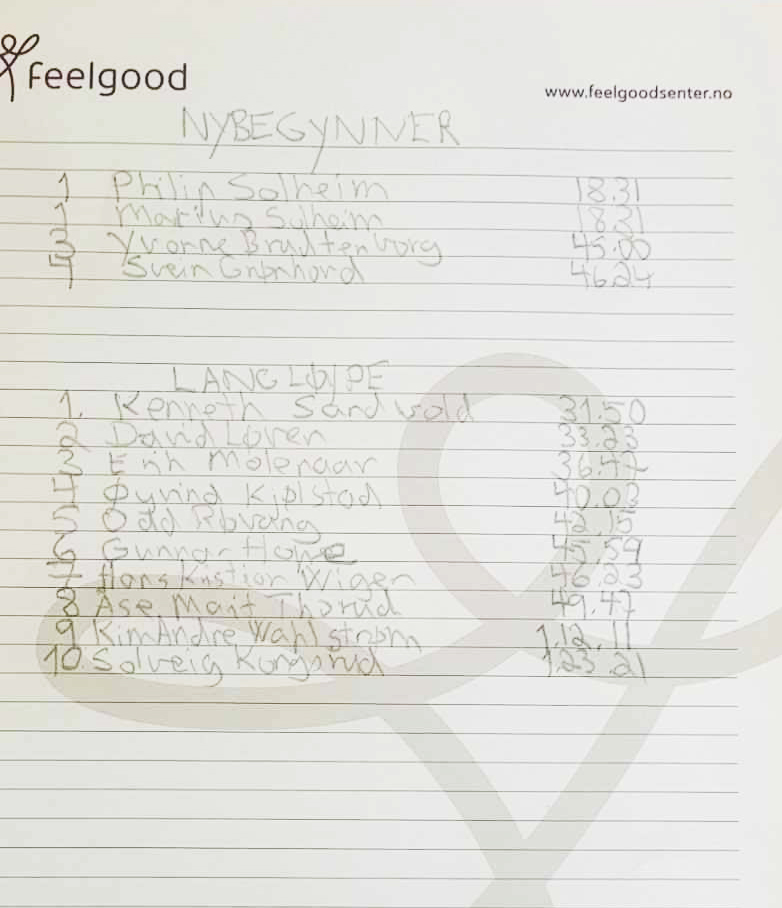 feelgood
www.feelgoodsenter.no
NYBEGYNNER
1 Philip Solheim 18.31
1 Marius Solheim 18.31
3 Yvonne 45.00
4 Svein Grønhord 46.24
LANGLØJPE
1. Kenneth Sandvold 31.50
2 David Løren 33.23
3 Erik Molenaar 36.47
4 Øyvind Kjølstad 40.02
5 Odd Røvang 42.15
6 Gunnar 45.59
7 Hans Kristian Wiger 46.23
8 Åse Marit Thorud 49.47
9 Kim Andre Wahlstrøm 1.12.11
10. Solveig Kongsrud 1.23.21